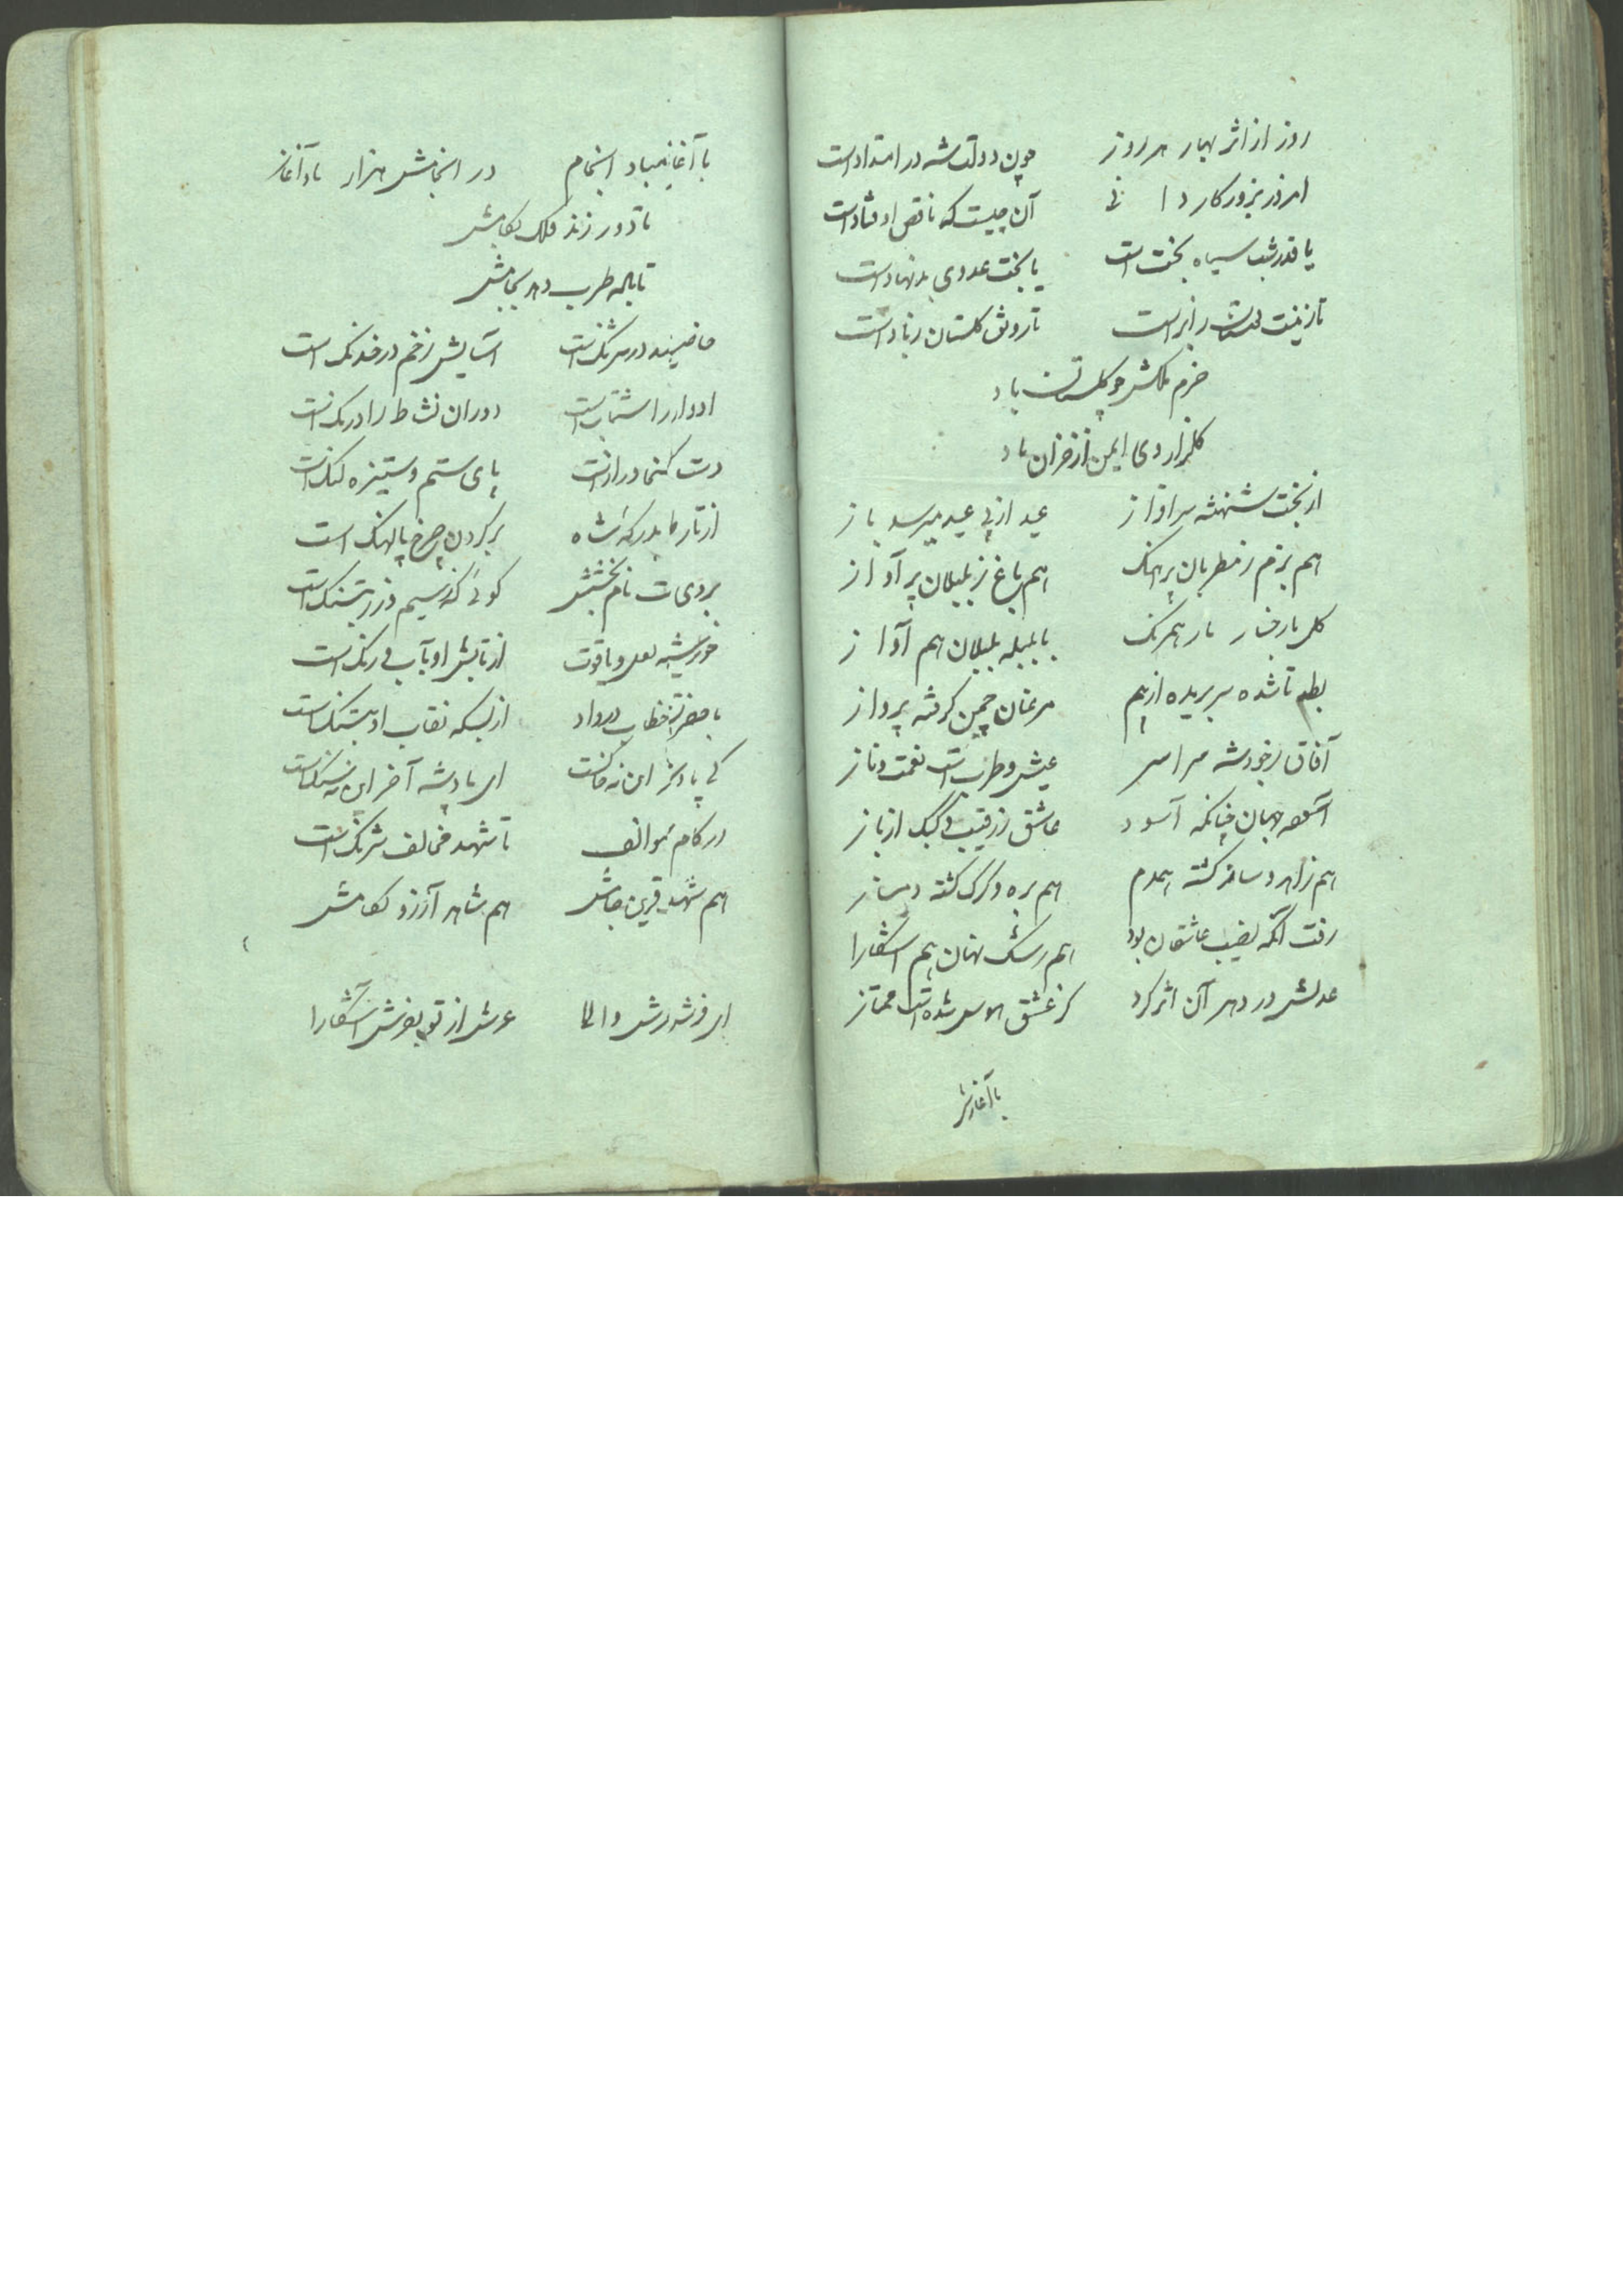 روز از اثر بهار هر روز چون دولت شه در امتداد است
امروز بروزکار دا نی آن چیست که ناقص اوفتاد است
یا قدر شب سیاه بخت است یا بخت عدوی بدنهاد است
تا زینت از است تا رونق کلستان ز باد است
خرم ملکش چو کلستان باد
کلزار وی ایمن از خزان باد
از بخت شهنشه سرافراز عید از پی عید میرسد باز
هم بزم ز مطربان پر اهنک هم باغ ز بلبلان پر آواز
کل با رخسار یار همرنک با بلبله بلبلان هم آواز
بط تا شده سر بریده از هم مرغان چمن کرفته پرواز
آفاق ز جود شه سراسر عیش و طرب است نعمت و ناز
جهان چنانکه آسود عاشق ز رقیب و کبک از باز
هم زاهد و ساغر کشته همدم هم بره و کرک کشته دمساز
رفت آنکه نصیب عاشقان بود هم رشک نهان هم اشکارا
عدلش در دهر آن اثر کرد کز عشق هوس شده است ممتاز
با آغازش
با آغازش مباد انجام در انجامش هزار باد آغاز
تا دور زند فلک بکامش
تا باله طرب دهر بجامش
در شرنک است آسایش زخم در خدنک است
ادوار را شتاب است دوران نشاط را درنک است
دست دراز است پای ستم و ستیزه لنک است
از تار درکه شاه بر کردن چرخ پالهنک است
بر دست نام بخشش کوئی که سیم و زر بسنک است
خورشید لعل و یاقوت از تابش او بآب و رنک است
با خطاب در داد از بسکه نقاب او بتنک است
کی این نه ای پادشه آخر این نه سنکست
در کام موالف تا شهد مخالف شرنک است
هم شهد قرین جامش هم شاهد آرزو بکامش
ای فرشد درش والا عرش از تو بفرش آشکارا